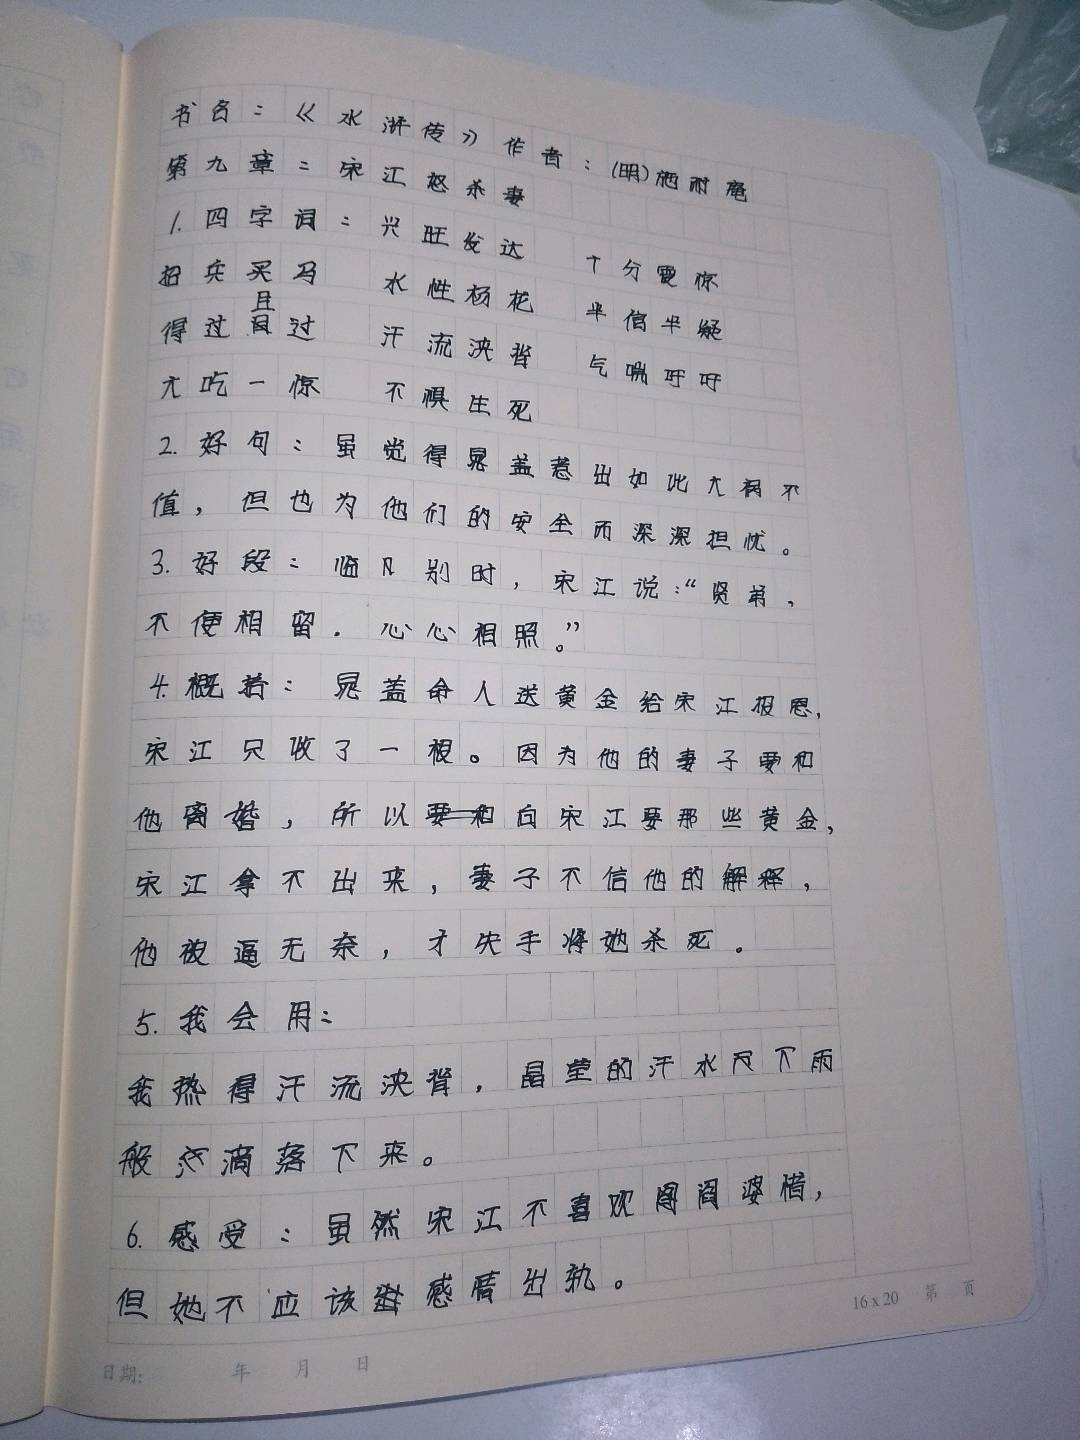 书名：《水浒传》作者：(明)施耐庵
第九章：宋江怒杀妻
1.四字词：兴旺发达 十分震惊
招兵买马 水性杨花 半信半疑
得过且过 汗流浃背 气喘吁吁
大吃一惊 不惧生死
2.好句：虽觉得晁盖惹出如此大祸不
值，但也为他们的安全而深深担忧。
3.好段：临别时，宋江说：“贤弟，
不便相留．心心相照。”
4.概括：晁盖命人送黄金给宋江报恩，
宋江只收了一根。因为他的妻子要和
他离婚，所以向宋江要那些黄金，
宋江拿不出来，妻子不信他的解释，
他被逼无奈，才失手将她杀死。
5.我会用：
我热得汗流浃背，晶莹的汗水下雨
般滴落下来。
6.感受：虽然宋江不喜欢阎婆惜，
但她不应该对感情出轨。
16x20 第 页
日期： 年 月 日